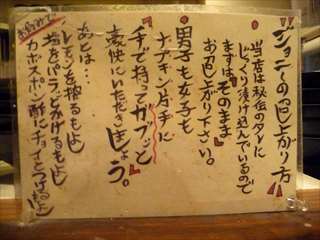 ジョニーの召し上がり方!!
当店は秘伝のタレに
じっくり漬け込んでいるので
まずはそのまま
お召し上がり下さい。
男子も女子も
ナプキン片手に
手で持ってガブッと
豪快にいただきましょう。
お好みで
あとは…
レモンを搾るもよし
塩をパラッとかけるもよし
カボスポン酢にチョイとつけるもよし